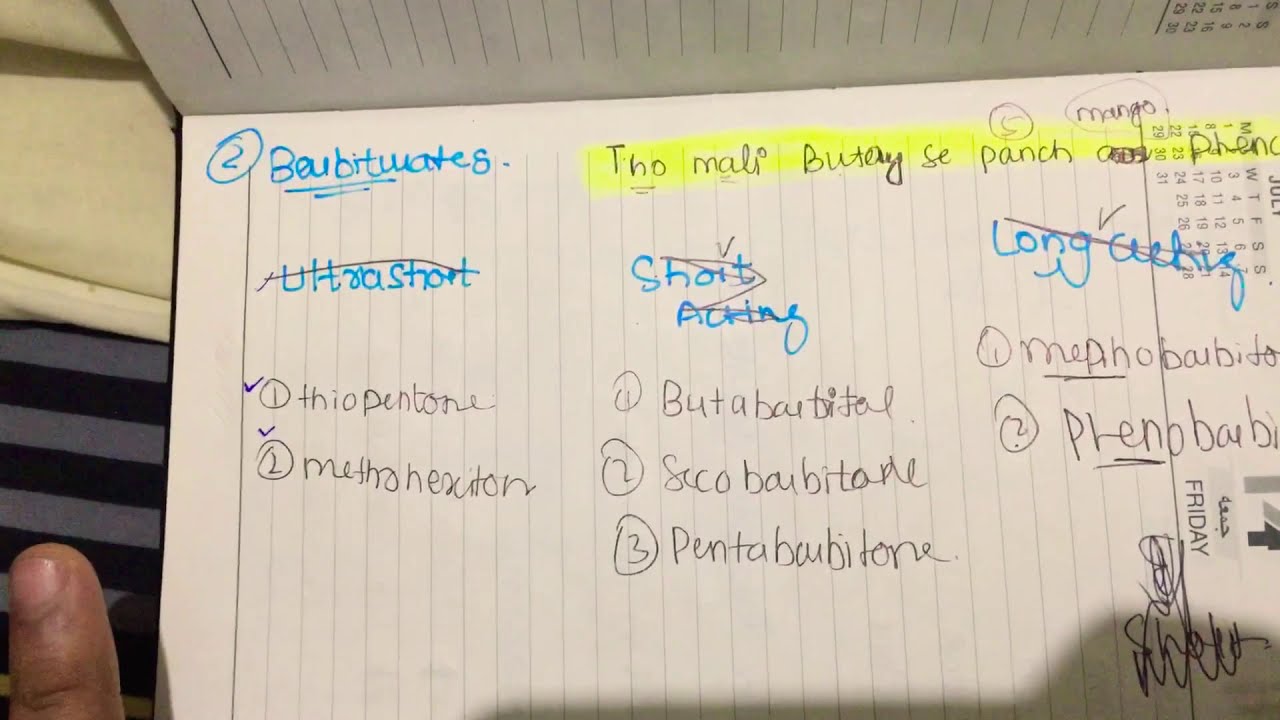 ⑤ mango.
② Barbiturates. Tho mali Butary se panch Pheno
Ultrashort
Short
Acting
Long Acting
① thiopentone
② methohexiton
① Butabarbital.
② Seco barbitone
③ Pentabarbitone.
① mephobarbito
② Phenobarbi
FRIDAY
جمعة
JULY
M 1 8 15 22 29
23 30
W 3 10 17 24 31
T 4 11 18 25
F 5 12 19 26
S 6 13 20
S 7 14 28